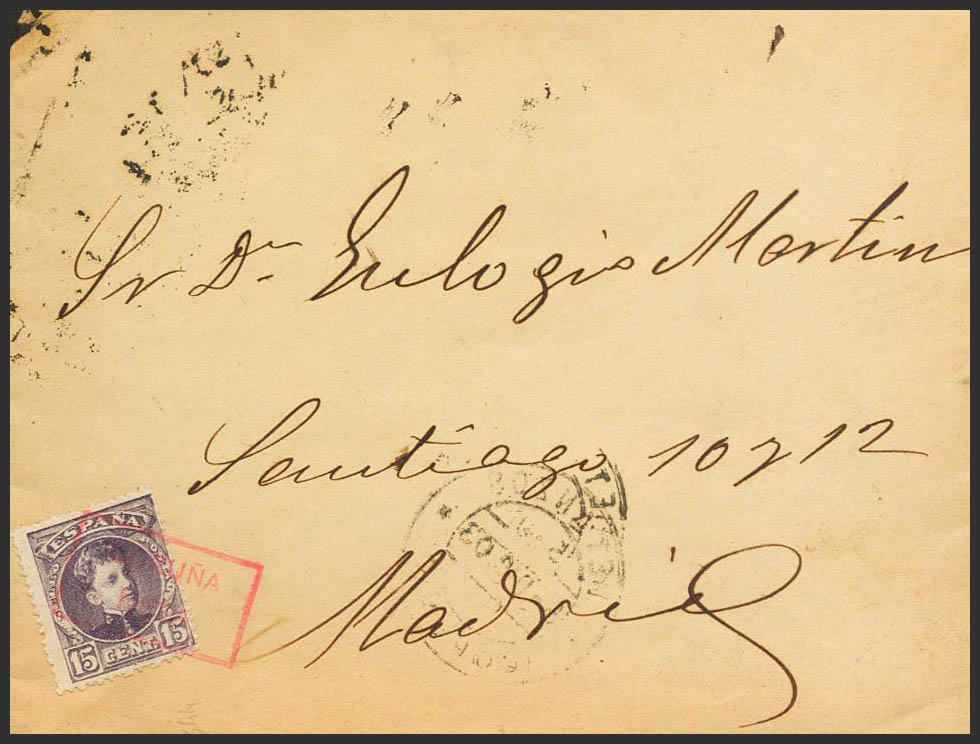 Sr Dn Eulogio Martin
Santiago 10 y 12
Madrid
ESPAÑA
15 CENTS 15
UÑA
03